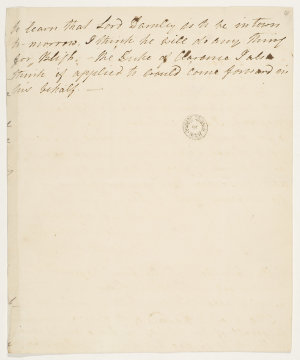 to learn that Lord Darnley is to be in town
to-morrow, I think he will do any thing
for Bligh, – the Duke of Clarence I also
think if applied to would come forward in
his behalf —